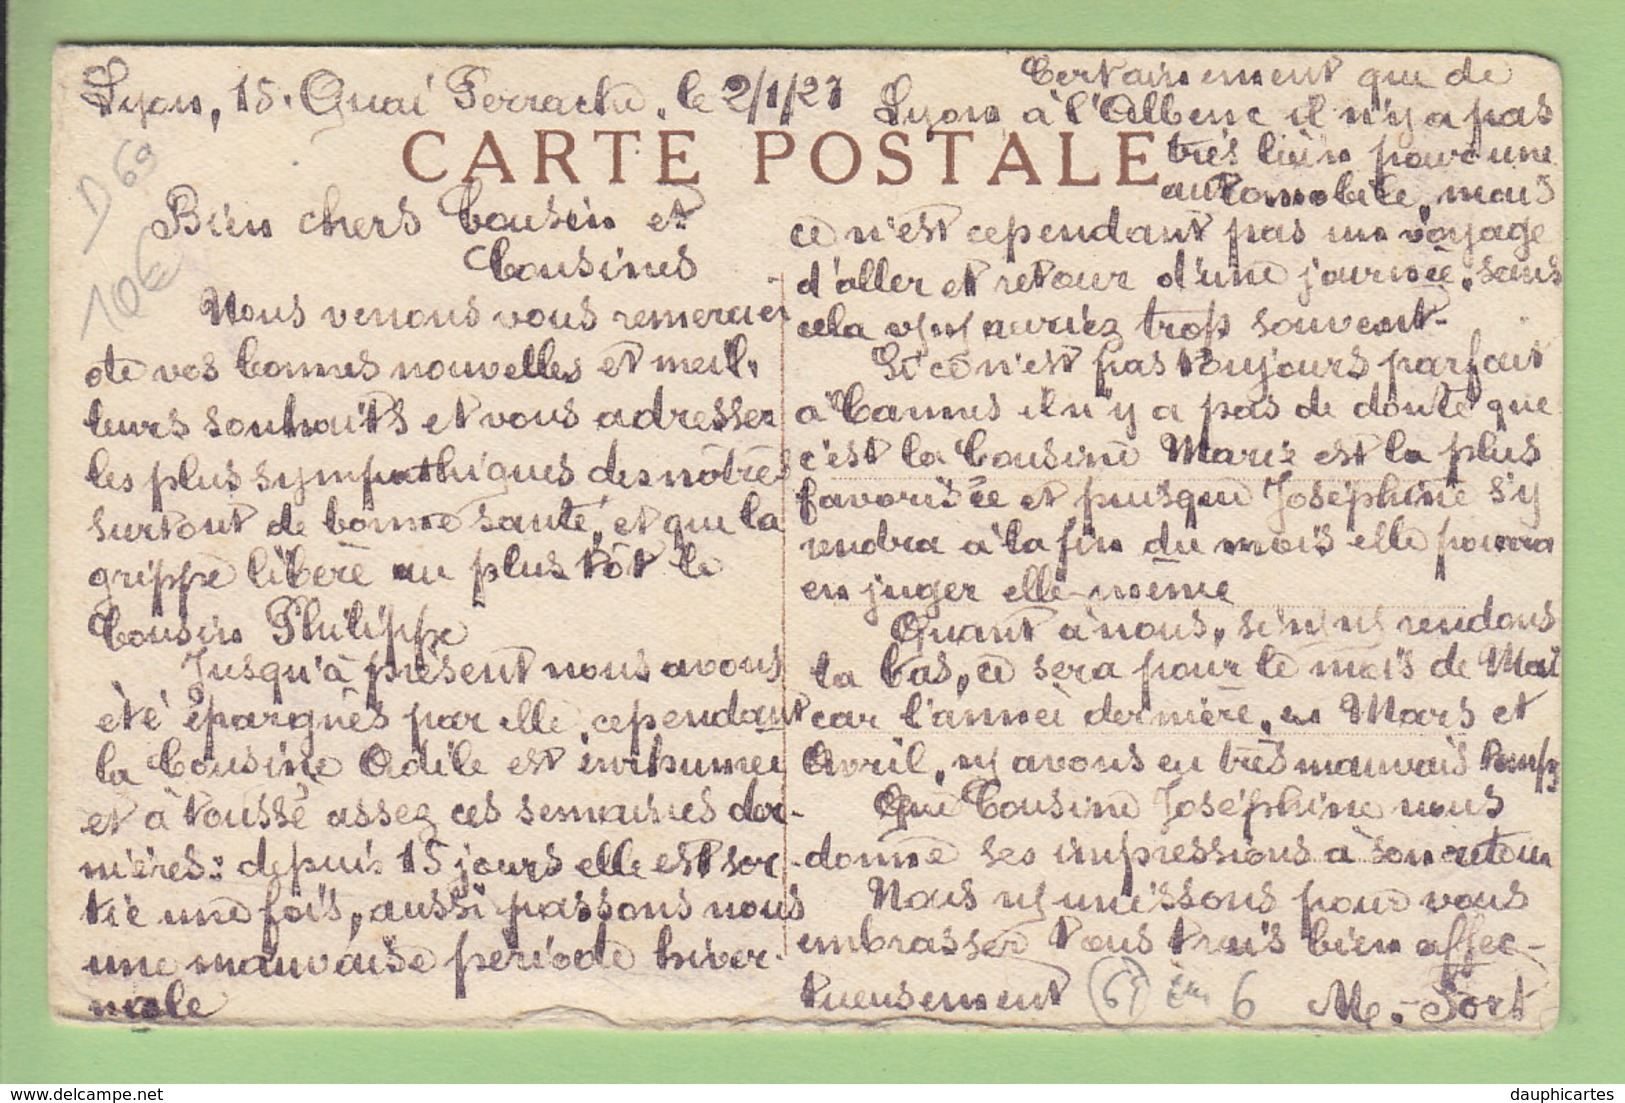 Lyon, 15. Quai Perrache, le 2/1/27
CARTE POSTALE
D 69
10€
Bien chers Cousin et
Cousines
Nous venons vous remercier
de vos bonnes nouvelles et meil-
leurs souhaits et vous adresser
les plus sympathiques des nôtres
surtout de bonne santé, et que la
grippe libère au plus tôt le
Cousin Philippe
Jusqu'à présent nous avons
été épargnés par elle, cependant
la Cousine Odile est enrhumée
et à toussé assez ces semaines der-
nières: depuis 15 jours elle est sor-
tie une fois, aussi passons nous
une mauvaise période hiver-
nale
Certainement que de
Lyon à l'Albenc il n'y a pas
très loin pour une
automobile, mais
ce n'est cependant pas un voyage
d'aller et retour d'une journée, sans
cela vs ns auriez trop souvent.
Si ce n'est pas toujours parfait
à Cannes il n'y a pas de doute que
c'est la Cousine Marie est la plus
favorisée et puisque Joséphine s'y
rendra à la fin du mois elle pourra
en juger elle-même
Quant à nous, si ns ns rendons
la bas, ce sera pour le mois de Mai
car l'année dernière, en Mars et
Avril, ns avons eu très mauvais temps
Que Cousine Joséphine nous
donne ses impressions à son retour
Nous ns unissons pour vous
embrasser tous trois bien affec-
tueusement
6
M. Fort
dauphicartes